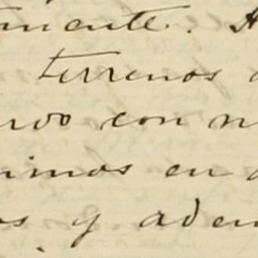 mente. A
terrenos
con n
imos en
os y adem